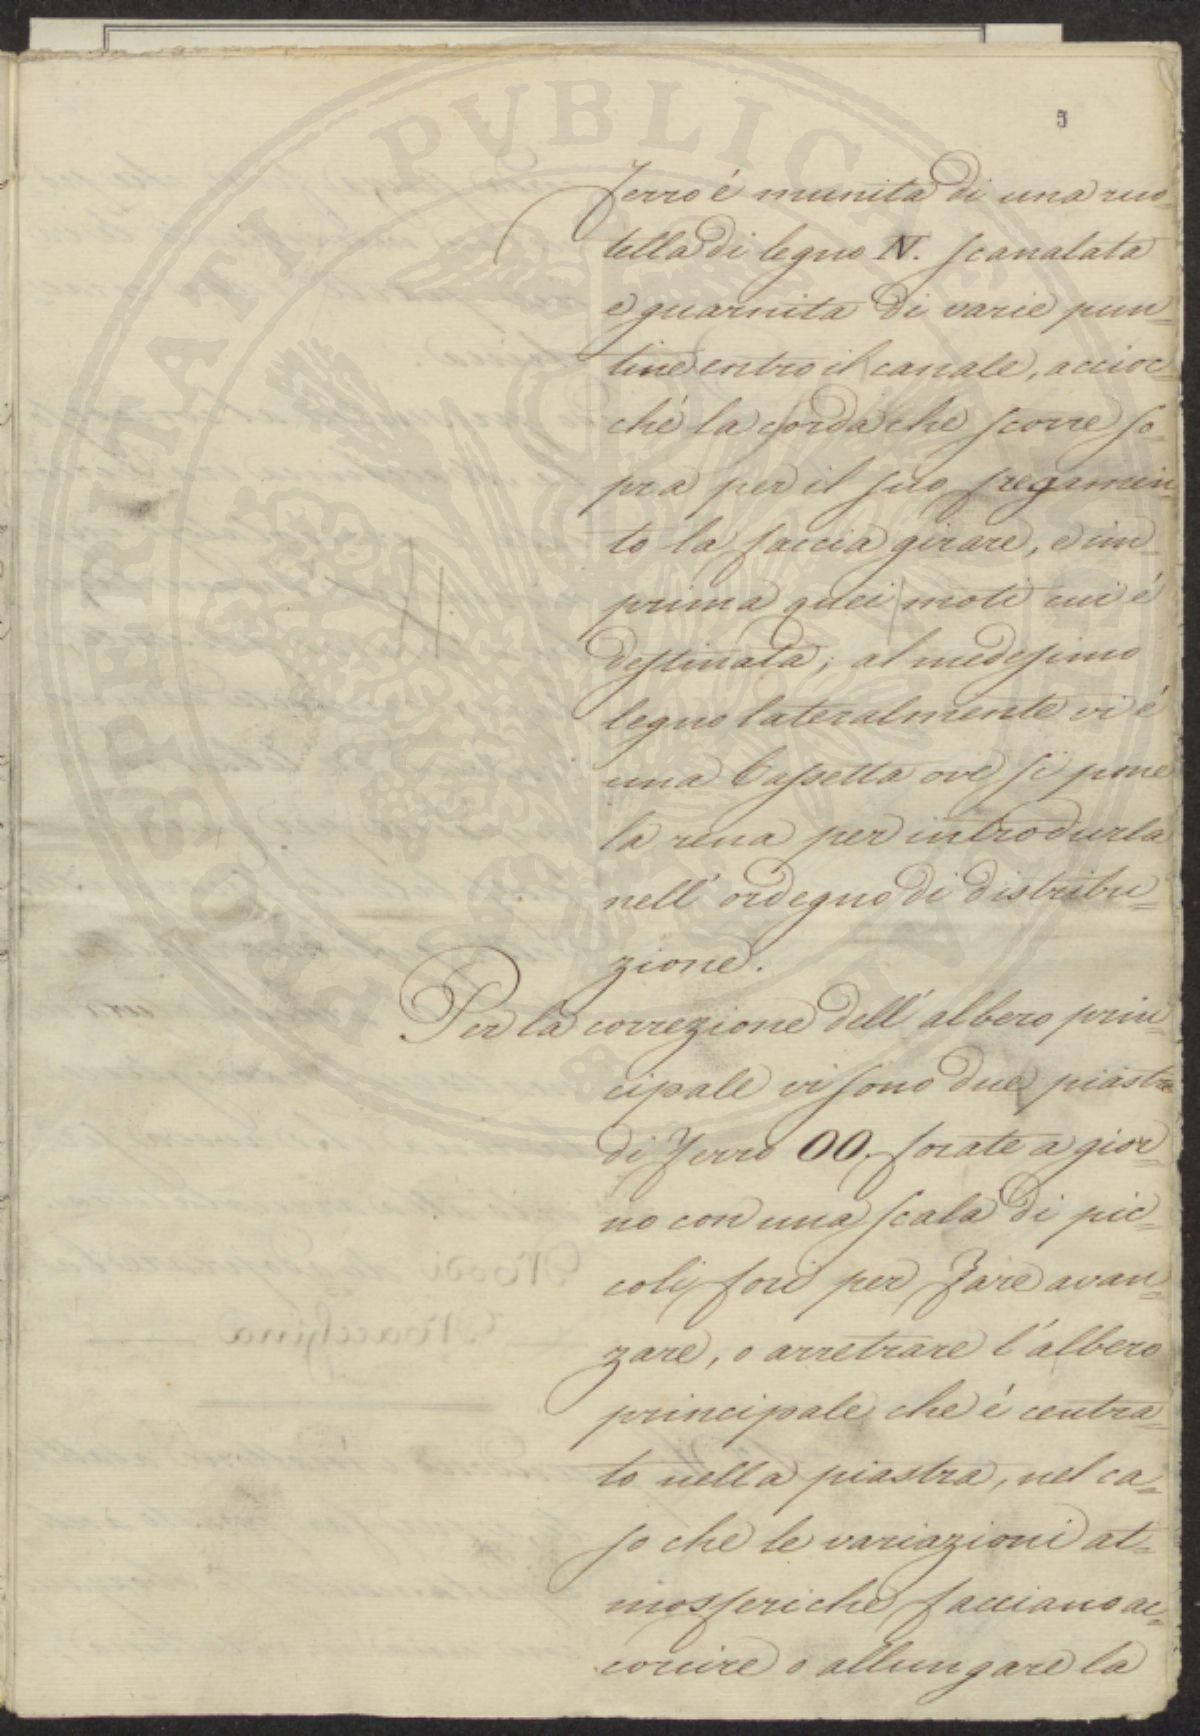 5
ferro é munita di una ruo=
tella di legno N. scanalata
e guarnita di varie pun=
tine entro il canale, accioc=
ché la corda che scorre so=
pra per il suo fregamen=
to la faccia girare, e im=
prima quei moti cui é
destinata; al medesimo
legno lateralmente vi é
una Cassetta ove si pone
la rena per introdurla
nell' ordegno di distribu=
zione.
Per la correzione dell' albero prin=
cipale vi sono due piastre
di ferro OO. forate a gior=
no con una scala di pic=
coli fori per fare avan=
zare, o arretrare l' albero
principale che é centra=
to nella piastra, nel ca=
so che le variazioni at=
mosferiche facciano ac=
corcire o allungare la
PROSPERITATI PVBLICAE